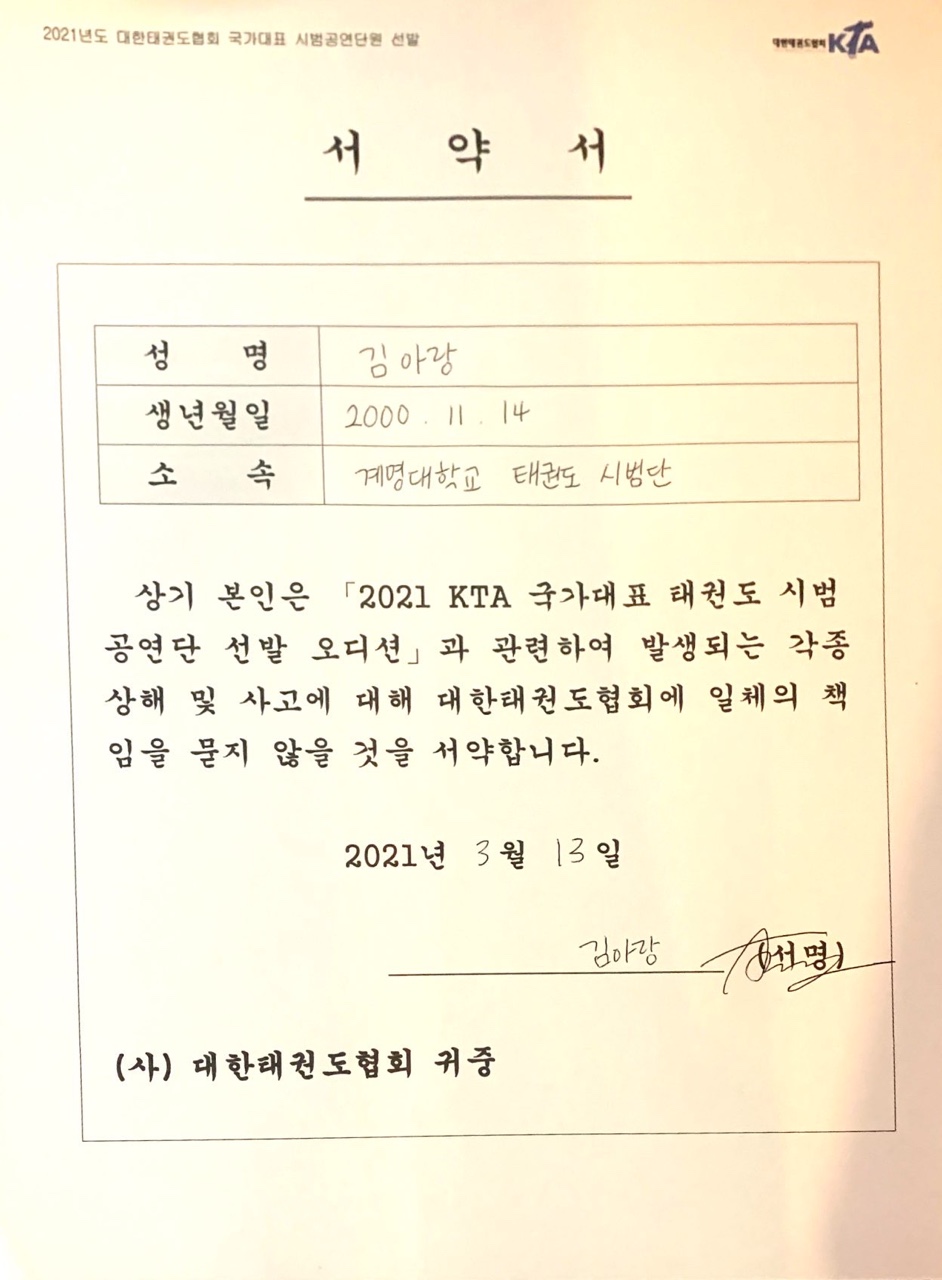 2021년도 대한태권도협회 국가대표 시범공연단원 선발
대한태권도협회 KTA
서 약 서
성 명 김아랑
생년월일 2000. 11. 14
소 속 계명대학교 태권도 시범단
상기 본인은 「2021 KTA 국가대표 태권도 시범
공연단 선발 오디션」과 관련하여 발생되는 각종
상해 및 사고에 대해 대한태권도협회에 일체의 책
임을 묻지 않을 것을 서약합니다.
2021년 3월 13일
김아랑 (서명)
(사) 대한태권도협회 귀중